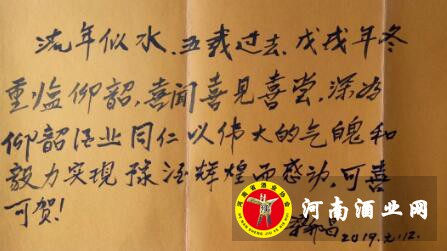 流年似水，五载过去，戊戌年冬
重临仰韶，喜闻喜见喜尝，深为
仰韶酒业同仁以伟大的气魄和
毅力实现豫酒辉煌而感动，可喜
可贺！
2019.元.12.
河南省酒业协会
河南酒业网